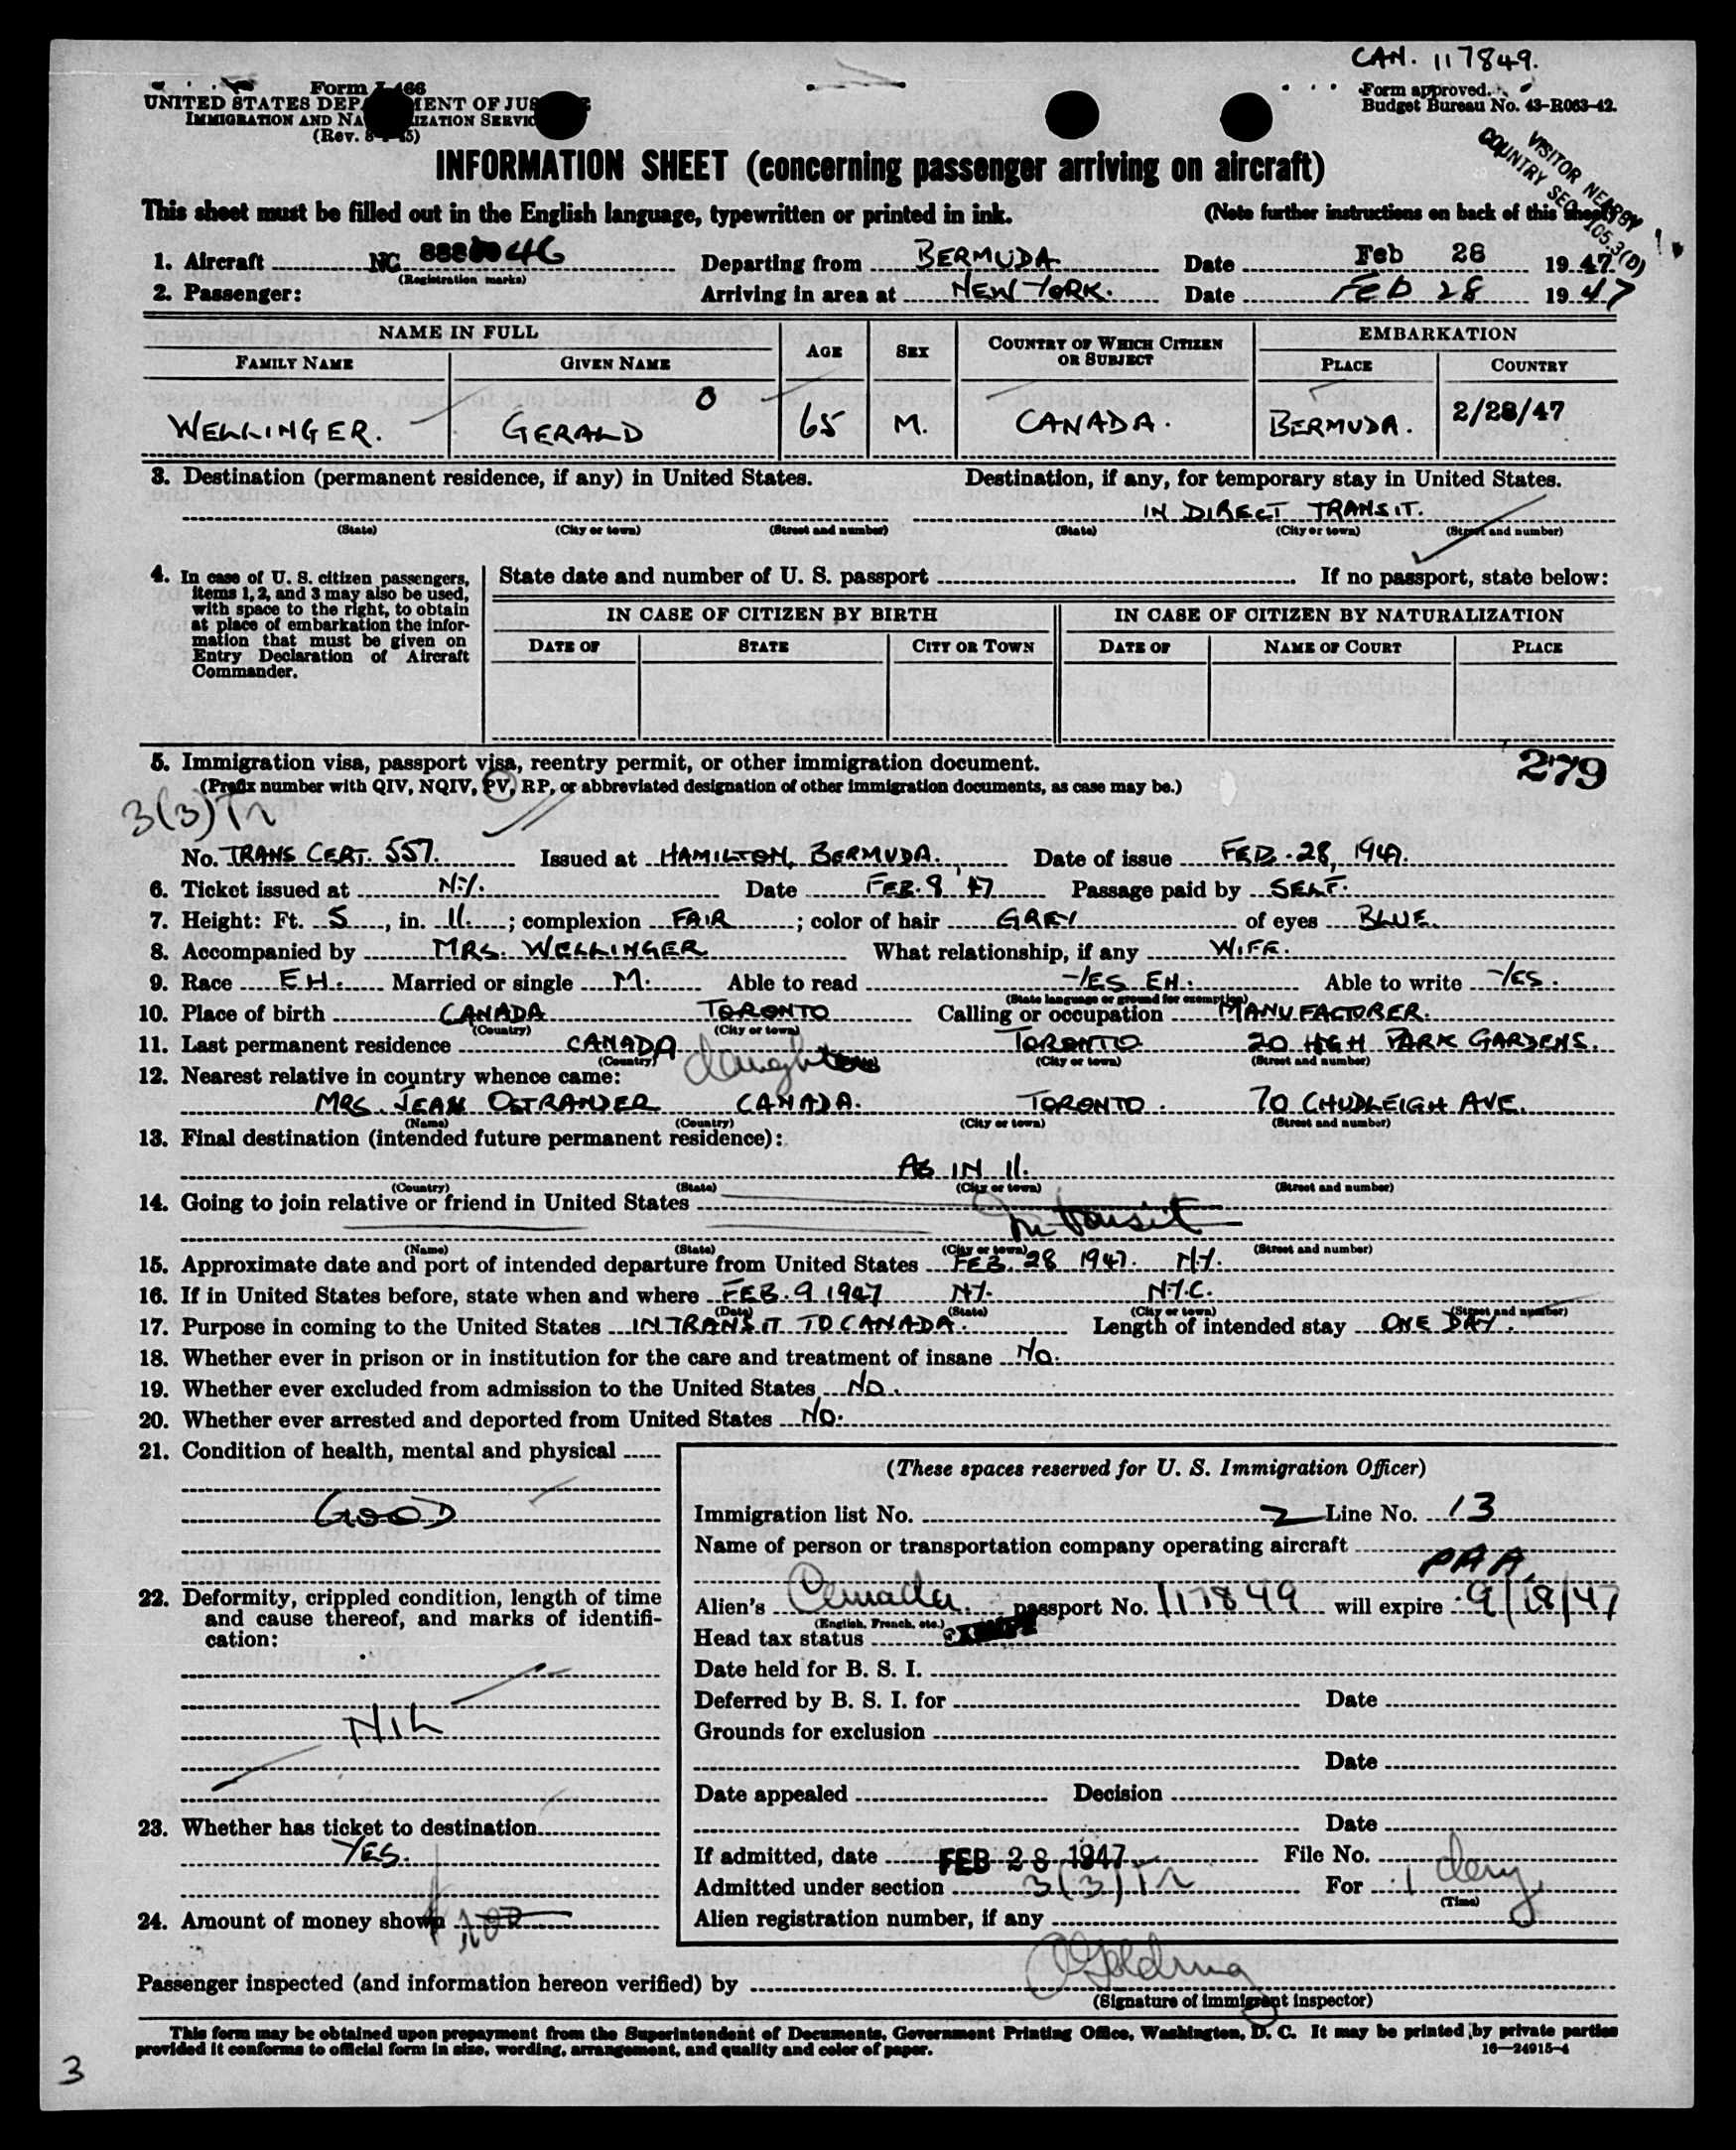 CAN. 117849.
Form I-466
UNITED STATES DEPARTMENT OF JUSTICE
IMMIGRATION AND NATURALIZATION SERVICE
(Rev. 8-1-45)
Form approved.
Budget Bureau No. 43-R063-42.
VISITOR NEARBY
COUNTRY SEC. 105.3(b)
INFORMATION SHEET (concerning passenger arriving on aircraft)
This sheet must be filled out in the English language, typewritten or printed in ink. (Note further instructions on back of this sheet)
1. Aircraft NC 46 Departing from BERMUDA Date Feb 28 1947
(Registration marks)
2. Passenger: Arriving in area at NEW YORK. Date FEB 28 1947
NAME IN FULL AGE SEX COUNTRY OF WHICH CITIZEN OR SUBJECT EMBARKATION
FAMILY NAME GIVEN NAME PLACE COUNTRY
WELLINGER. GERALD O 65 M. CANADA. BERMUDA. 2/28/47
3. Destination (permanent residence, if any) in United States. Destination, if any, for temporary stay in United States.
IN DIRECT TRANSIT.
(State) (City or town) (Street and number) (State) (City or town) (Street and number)
4. In case of U. S. citizen passengers, items 1, 2, and 3 may also be used, with space to the right, to obtain at place of embarkation the information that must be given on Entry Declaration of Aircraft Commander.
State date and number of U. S. passport If no passport, state below:
IN CASE OF CITIZEN BY BIRTH IN CASE OF CITIZEN BY NATURALIZATION
DATE OF STATE CITY OR TOWN DATE OF NAME OF COURT PLACE
5. Immigration visa, passport visa, reentry permit, or other immigration document. 279
(Prefix number with QIV, NQIV, PV, RP, or abbreviated designation of other immigration documents, as case may be.)
3(3)Tr
No. TRANS CERT. 557. Issued at HAMILTON, BERMUDA. Date of issue FEB. 28, 1947.
6. Ticket issued at N.Y. Date FEB. 9 '47 Passage paid by SELF.
7. Height: Ft. 5, in. 11.; complexion FAIR; color of hair GREY of eyes BLUE.
8. Accompanied by MRS. WELLINGER What relationship, if any WIFE.
9. Race EH. Married or single M. Able to read YES EH. Able to write YES.
(State language or ground for exemption)
10. Place of birth CANADA TORONTO Calling or occupation MANUFACTORER.
(Country) (City or town)
11. Last permanent residence CANADA TORONTO 20 HIGH PARK GARDENS.
(Country) (City or town) (Street and number)
12. Nearest relative in country whence came: daughter
MRS. JEAN OSTRANDER CANADA. TORONTO. 70 CHUDLEIGH AVE.
(Name) (Country) (City or town) (Street and number)
13. Final destination (intended future permanent residence):
AS IN 11.
(Country) (State) (City or town) (Street and number)
14. Going to join relative or friend in United States
In transit
(Name) (State) (City or town) (Street and number)
15. Approximate date and port of intended departure from United States FEB. 28 1947. N.Y.
16. If in United States before, state when and where FEB. 9 1947 NY. N.Y.C.
(Date) (State) (City or town) (Street and number)
17. Purpose in coming to the United States IN TRANSIT TO CANADA. Length of intended stay ONE DAY.
18. Whether ever in prison or in institution for the care and treatment of insane No.
19. Whether ever excluded from admission to the United States No.
20. Whether ever arrested and deported from United States No.
21. Condition of health, mental and physical
GOOD
22. Deformity, crippled condition, length of time and cause thereof, and marks of identification:
NIL
23. Whether has ticket to destination
YES.
24. Amount of money shown
(These spaces reserved for U. S. Immigration Officer)
Immigration list No. 2 Line No. 13
Name of person or transportation company operating aircraft
PAA.
Alien's Canada. passport No. 117849 will expire 9/18/47
(English, French, etc.)
Head tax status
Date held for B. S. I.
Deferred by B. S. I. for Date
Grounds for exclusion
Date
Date appealed Decision
Date
If admitted, date FEB 28 1947 File No.
Admitted under section 3(3)Tr For 1 day
(Time)
Alien registration number, if any
Passenger inspected (and information hereon verified) by
(Signature of immigrant inspector)
This form may be obtained upon prepayment from the Superintendent of Documents, Government Printing Office, Washington, D. C. It may be printed by private parties
provided it conforms to official form in size, wording, arrangement, and quality and color of paper. 16—24915-4
3